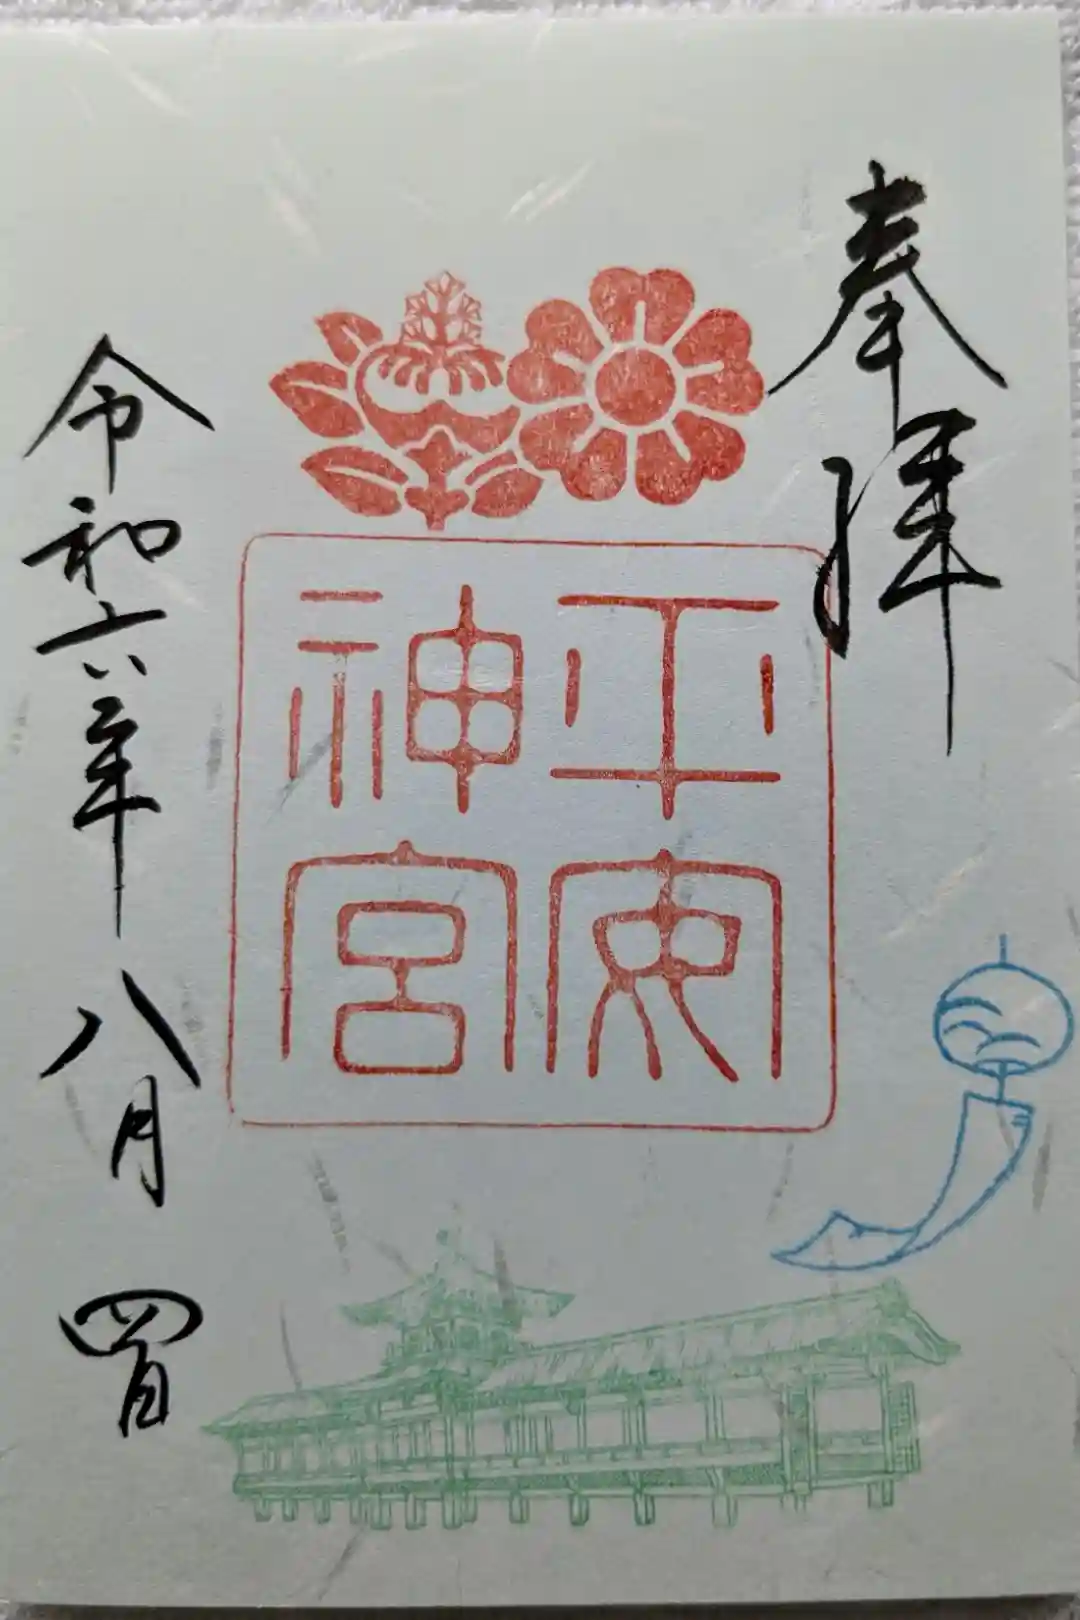 奉拝
平安
神宮
令和六年八月四日